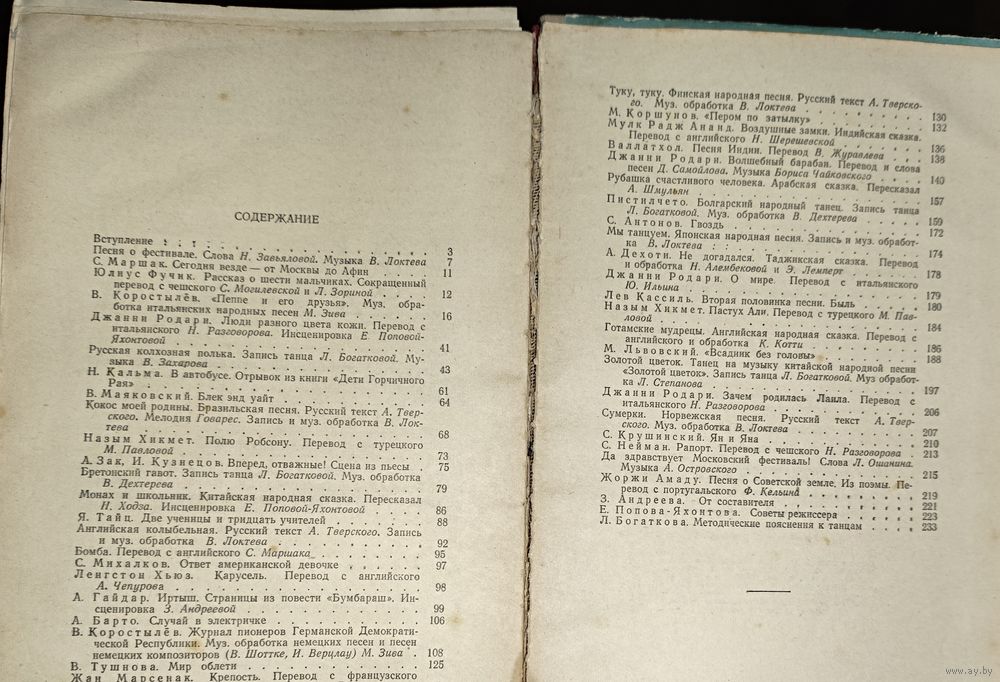 СОДЕРЖАНИЕ
Вступление . . . . . . . . . . . . . . 3
Песня о фестивале. Слова Н. Завьяловой. Музыка В. Локтева 7
С. Маршак. Сегодня везде — от Москвы до Афин . . . . . 11
Юлиус Фучик. Рассказ о шести мальчиках. Сокращенный
перевод с чешского С. Могилевской и Л. Зориной . . . . 12
В. Коростылёв. «Пеппе и его друзья». Муз. обра-
ботка итальянских народных песен М. Зива . . . . . . 16
Джанни Родари. Люди разного цвета кожи. Перевод с
итальянского Н. Разговорова. Инсценировка Е. Поповой-
Яхонтовой . . . . . . . . . . . . . . 41
Русская колхозная полька. Запись танца Л. Богатковой. Му-
зыка В. Захарова . . . . . . . . . . . . 43
Н. Кальма. В автобусе. Отрывок из книги «Дети Горчичного
Рая» . . . . . . . . . . . . . . . . 61
В. Маяковский. Блек энд уайт . . . . . . . . . . 64
Кокос моей родины. Бразильская песня. Русский текст А. Твер-
ского. Мелодия Говарес. Запись и муз. обработка В. Лок-
тева . . . . . . . . . . . . . . . . 68
Назым Хикмет. Полю Робсону. Перевод с турецкого
М. Павловой . . . . . . . . . . . . . . 73
А. Зак, И. Кузнецов. Вперед, отважные! Сцена из пьесы . . 75
Бретонский гавот. Запись танца Л. Богатковой. Муз. обработка
В. Дехтерева . . . . . . . . . . . . . . 79
Монах и школьник. Китайская народная сказка. Пересказал
Н. Ходза. Инсценировка Е. Поповой-Яхонтовой . . . . . 86
Я. Тайц. Две ученицы и тридцать учителей . . . . . . 88
Английская колыбельная. Русский текст А. Тверского. Запись
и муз. обработка В. Локтева . . . . . . . . . . 92
Бомба. Перевод с английского С. Маршака . . . . . . . 95
С. Михалков. Ответ американской девочке . . . . . . 97
Ленгстон Хьюз. Карусель. Перевод с английского
А. Чепурова . . . . . . . . . . . . . . 98
А. Гайдар. Иртыш. Страницы из повести «Бумбараш». Ин-
сценировка З. Андреевой . . . . . . . . . . . 99
А. Барто. Случай в электричке . . . . . . . . . . 106
В. Коростылёв. Журнал пионеров Германской Демократи-
ческой Республики. Муз. обработка немецких песен и песен
немецких композиторов (В. Шоттке, И. Верцлау) М. Зива . 108
В. Тушнова. Мир облети . . . . . . . . . . . 125
Жан Марсенак. Крепость. Перевод с французского
Туку, туку. Финская народная песня. Русский текст А. Тверско-
го. Муз. обработка В. Локтева . . . . . . . . . 130
М. Коршунов. «Пером по затылку» . . . . . . . . 132
Мулк Радж Ананд. Воздушные замки. Индийская сказка.
Перевод с английского Н. Шерешевской . . . . . . . 136
Валлатхол. Песня Индии. Перевод В. Журавлева . . . 138
Джанни Родари. Волшебный барабан. Перевод и слова
песен Д. Самойлова. Музыка Бориса Чайковского . . . . 140
Рубашка счастливого человека. Арабская сказка. Пересказал
А. Шмульян . . . . . . . . . . . . . . 157
Пистилчето. Болгарский народный танец. Запись танца
Л. Богатковой. Муз. обработка В. Дехтерева . . . . . 159
С. Антонов. Гвоздь . . . . . . . . . . . . 172
Мы танцуем. Японская народная песня. Запись и муз. обработ-
ка В. Локтева . . . . . . . . . . . . . 174
А. Дехоти. Не догадался. Таджикская сказка. Перевод
и обработка Н. Алембековой и Э. Лемперт . . . . . . 178
Джанни Родари. О мире. Перевод с итальянского
Ю. Ильина . . . . . . . . . . . . . . 179
Лев Кассиль. Вторая половинка песни. Быль . . . . . 180
Назым Хикмет. Пастух Али. Перевод с турецкого М. Пав-
ловой . . . . . . . . . . . . . . . . 184
Готамские мудрецы. Английская народная сказка. Перевод с
английского и обработка К. Котти . . . . . . . . 186
М. Львовский. «Всадник без головы» . . . . . . . 188
Золотой цветок. Танец на музыку китайской народной песни
«Золотой цветок». Запись танца Л. Богатковой. Муз обработ-
ка Л. Степанова . . . . . . . . . . . . 197
Джанни Родари. Зачем родилась Лаила. Перевод с
итальянского Н. Разговорова . . . . . . . . . . 206
Сумерки. Норвежская песня. Русский текст А. Твер-
ского. Муз. обработка В. Локтева . . . . . . . . 207
С. Крушинский. Ян и Яна . . . . . . . . . . 210
С. Нейман. Рапорт. Перевод с чешского Н. Разговорова . 213
Да здравствует Московский фестиваль! Слова Л. Ошанина.
Музыка А. Островского . . . . . . . . . . . 215
Жоржи Амаду. Песня о Советской земле. Из поэмы. Пе-
ревод с португальского Ф. Кельина . . . . . . . . 219
З. Андреева. От составителя . . . . . . . . . . 221
Е. Попова-Яхонтова. Советы режиссера . . . . . . 223
Л. Богаткова. Методические пояснения к танцам . . . . 233
www.ay.by